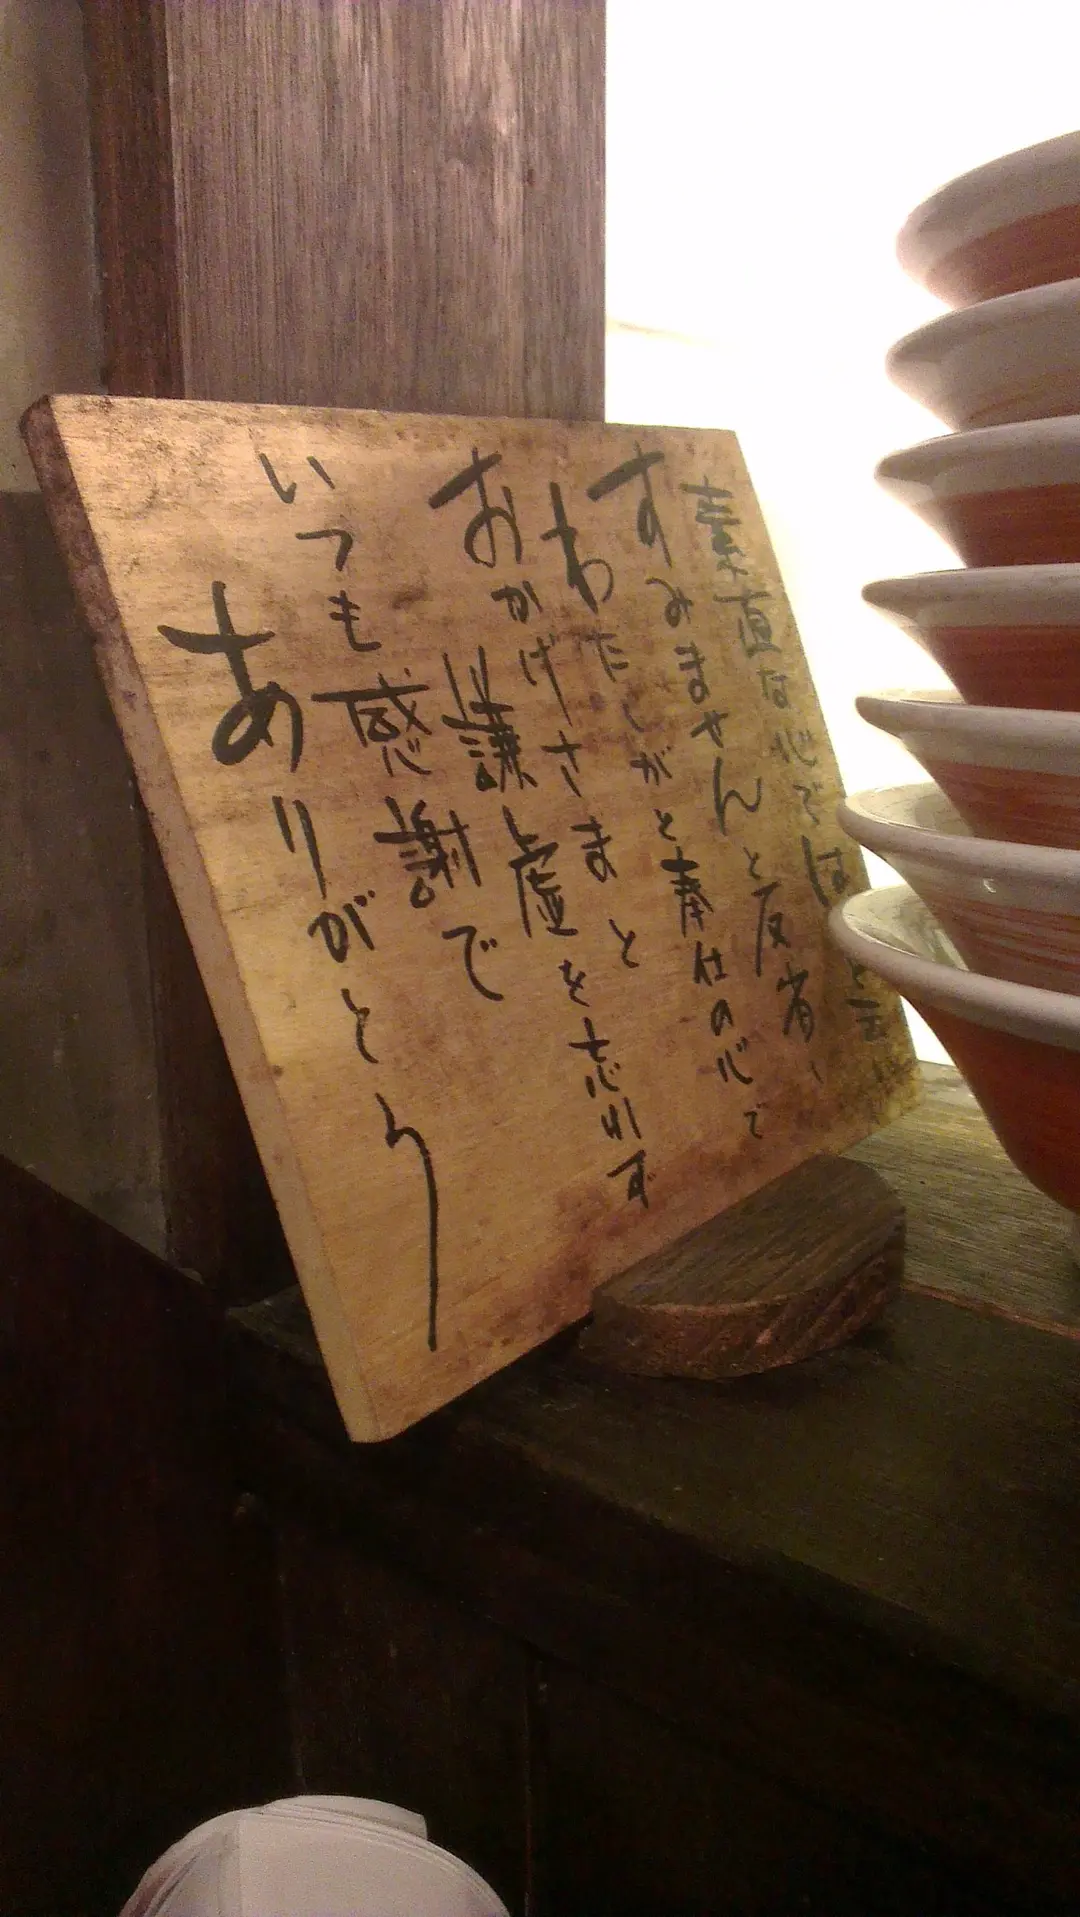 素直な心では と言
すみませんと反省、
わたしがと奉仕の心で
おかげさまと
謙虚を忘れず
いつも感謝で
ありがとう